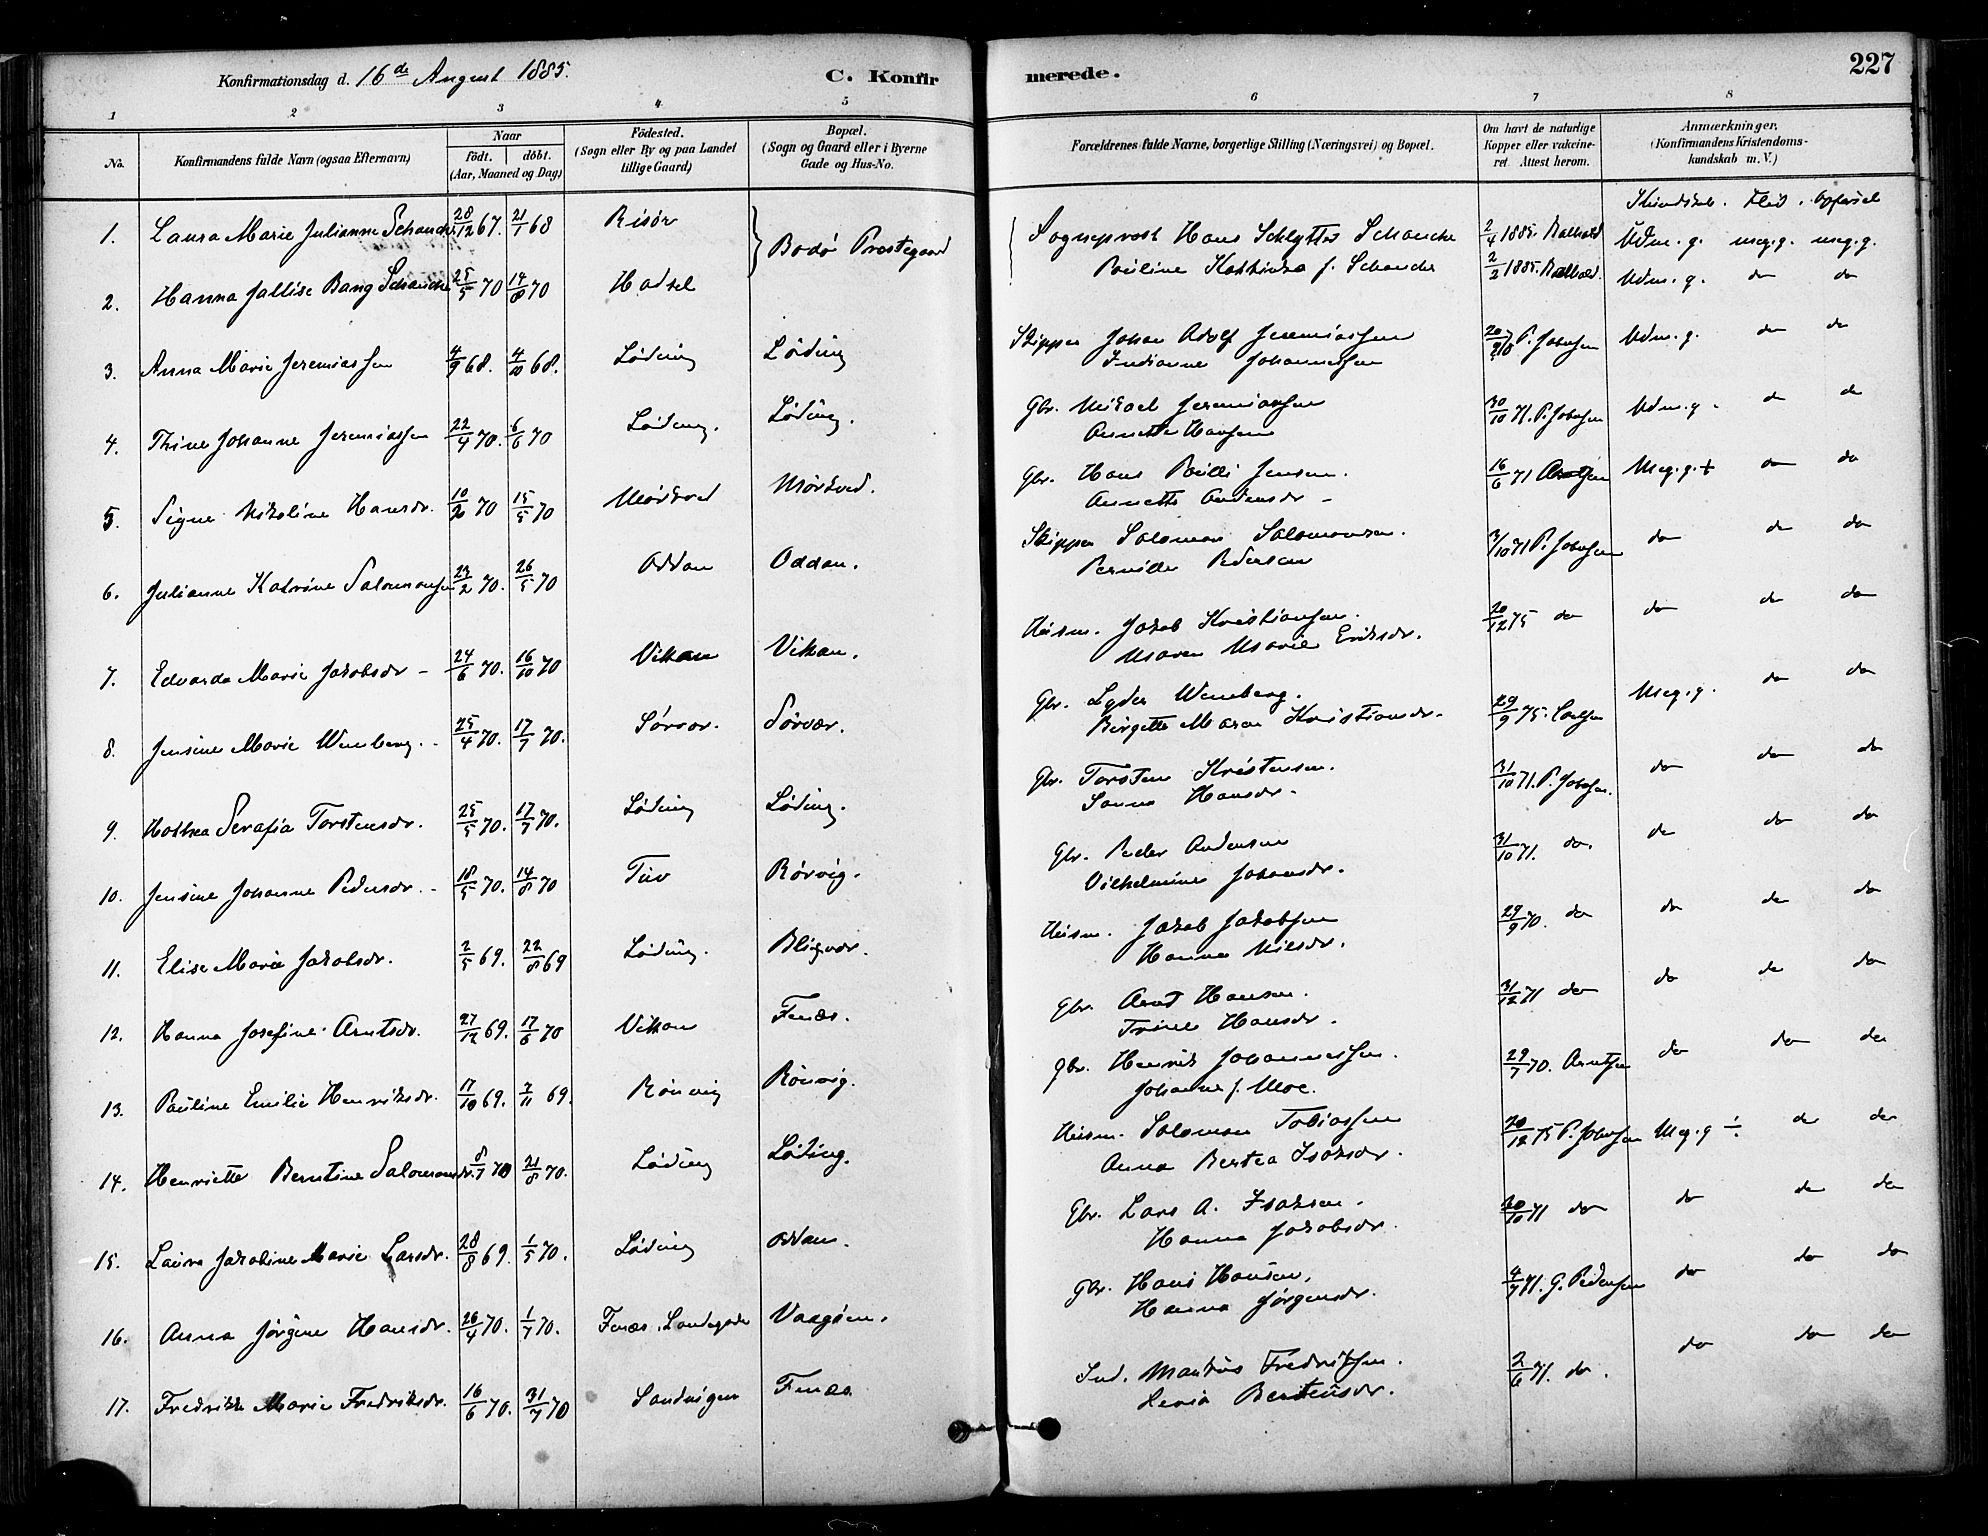 Konfirmationsdag d. 16de August 1885. C. Konfirmerede. 227
1 2 3 4 5 6 7 8
No. Konfirmandens fulde Navn (ogsaa Efternavn) Naar födt. döbt. (Aar, Maaned og Dag) Födested. (Sogn eller By og paa Landet tillige Gaard) Bopæl. (Sogn og Gaard eller i Byerne Gade og Hus-No. Forældrenes fulde Navne, borgerlige Stilling (Næringsvei) og Bopæl. Om havt de naturlige Kopper eller vakcineret. Attest herom. Anmærkninger. (Konfirmandens Kristendomskundskab m. V.)
Kundskab. Flid. Opførsel
1. Laura Marie Julianne Schanche 28/12 67. 21/1 68 Risør Bodø Prestegaard Sogneprest Hans Schlytter Schanche 2/4 1885. Udm. g. meg. g. meg. g.
2. Hanna Jallise Bang Schanche 25/5 70 14/8 70 Hadsel Pauline Kathinka f. Schanche 2/2 1885. Udm. g. do do
3. Anna Marie Jeremiassen 4/9 68. 4/10 68. Løding Løding Skipper Johan Adolf Jeremiassen P. Johnsen Udm. g. do do
Indianne Johannessen
4. Thine Johanne Jeremiassen 22/4 70. 6/6 70 Løding. Løding. Gbr. Mikael Jeremiassen 30/10 71. P. Johnsen Udm. g. do do
Annette Hansen
5. Signe Nikoline Hansdr. 10/2 70 15/5 70 Mørkved Mørkved. Gbr. Hans Peitli Jensen. 16/6 71 Arntsen Meg. g. + do do
Annette Andersdr
6. Julianne Katrine Salomonsen 23/2 70. 26/5 70 Oddan Oddan. Skipper Salomon Salomonsen. 31/10 71 P. Johnsen do do do
Pernille Pedersen
7. Edvarda Marie Jakobsdr 24/6 70. 16/10 70 Vikan Vikan. Husm. Jakob Kristiansen. 20/12 75 do do do do
Maren Marie Eriksdr.
8. Jensine Marie Wenberg. 25/4 70. 17/7 70. Sørvær. Sørvær. Gbr. Lyder Wenberg. 29/9 75. Meg. g. do do
Birgitte Maren Kristiansdr.
9. Hothea Serafia Torstensdr. 25/5 70. 17/7 70. Løding Løding. Gbr. Torsten Kristensen. 31/10 71. P. Johnsen. do do do
Sanna Hansdr.
10. Jensine Johanne Pedersdr. 18/5 70. 14/8 70 Tuv Rørvig. Gbr. Peder Andersen 31/10 71. do. do do do
Vilhelmine Johansdr.
11. Elise Marie Jakobsdr. 2/5 69. 22/8 69 Løding. Bligvær. Husm. Jakob Jakobsen 29/9 70. do do do do
Hanna Nilsdr.
12. Hanna Josefine Arntsdr. 27/12 69. 17/6 70 Vikan Fenæs. Gbr. Arnt Hansen. 31/12 71 do do do do
Trine Hansdr.
13. Pauline Emilie Henriksdr. 17/10 69. 7/11 69. Rønvig Rønvig. Gbr. Henrik Johannessen. 29/7 70. Arntsen do do do
Johanne f. Moe.
14. Henriette Berntine Salomonsdr. 8/7 70 21/8 70. Løding Løding. Husm. Salomon Tobiassen 20/12 75 P. Johnsen Meg. g ÷ do do
Anna Bertea Isaksdr.
15. Laura Jakobine Marie Larsdr. 28/8 69. 1/5 70. Løding Oddan. Gbr. Lars A. Isaksen. 30/10 71 do do do do
Hanna Jakobsdr.
16. Anna Jørgine Hansdr. 26/4 70. 1/7 70. Fenæs, Landegode Vaagøen. Gbr. Hans Hansen, 4/7 71. G. Pedersen do do do
Hanna Jørgensdr.
17. Fredrikke Marie Fredriksdr. 16/6 70. 31/7 70 Sandvigen Fenæs Ind. Markus Fredriksen. 2/6 71. do. do do do
Berteusdr.